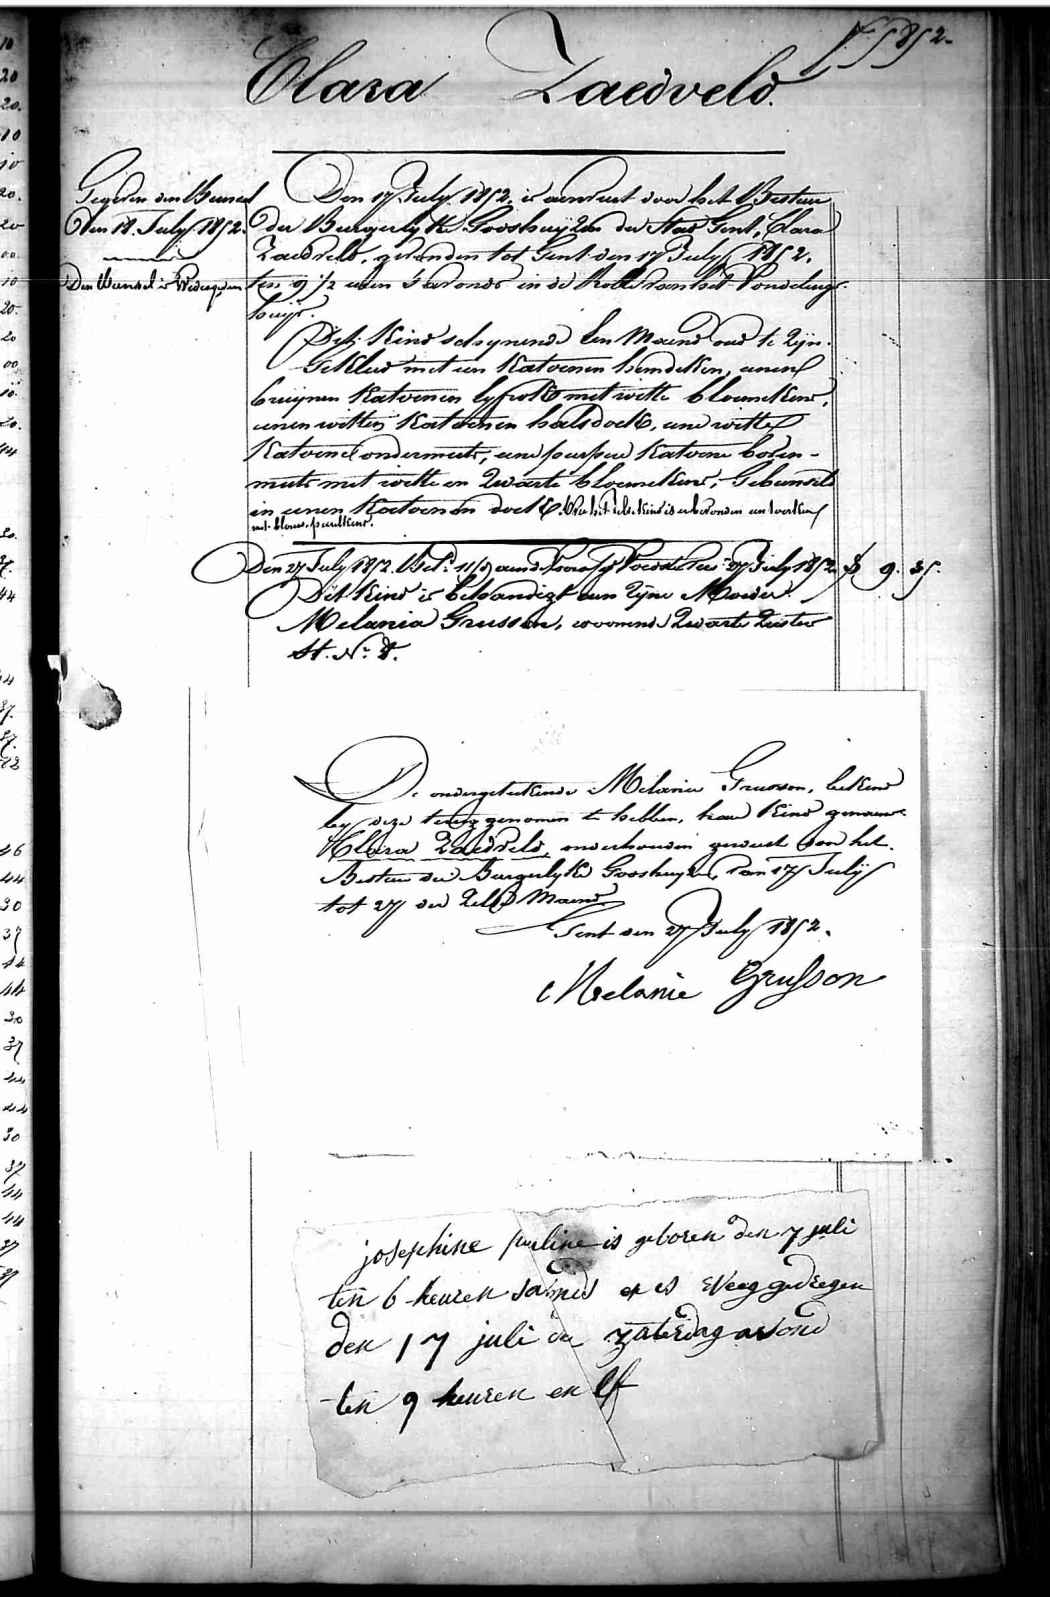 1852.
Clara Zaedveld.
Gegeven den Bunsel
Den 18 July 1852.
Den Bunsel is Wedergegeven
Den 17 July 1852. is aenveert door het Bestuer
der Burgerlyke Godshuyzen der Stad Gent, Clara
Zaedveld, gevonden tot Gent den 17 July 1852,
ten 9 1/2 uren 's avonds in de Rolle van het Vondeling-
huys.
Dit Kind schynende Een Maend oud te Zyn.
Gekleed met een Katoenen hemdeken, eenen
bruynen Katoenen lyfrok met witte bloemekens,
eenen witten Katoenen halsdoek, eene witte
Katoene ondermuts, eene purpere Katoene boven-
muts met witte en Zwarte bloemekens, Gebunseld
in eenen Katoenen doek. By het zelve Kind is gevonden een
met blauwe
Den 27 July 1852. Bet. 27 July 1852 9. 35.
Dit Kind is behandigt aen Zyne Moeder
Melania Grusson, woonende Zwarte Zuster
St. Nr. 8.
De ondergeteekende Melanie Grusson, bekend
by deze terug genomen te hebben, haer Kind genaemd
Clara Zaedveld, onderhouden geweest door het
Bestuer der Burgerlyke Godshuyzen, van 17 July
tot 27 der Zelve Maend.
Gent den 27 July 1852.
Melanie Grusson
josephine pauline is geboren den 7 juli
ten 6 heuren savnds en is Weeg gedregen
den 17 juli de zaterdag avond
ten 9 heuren en Elf